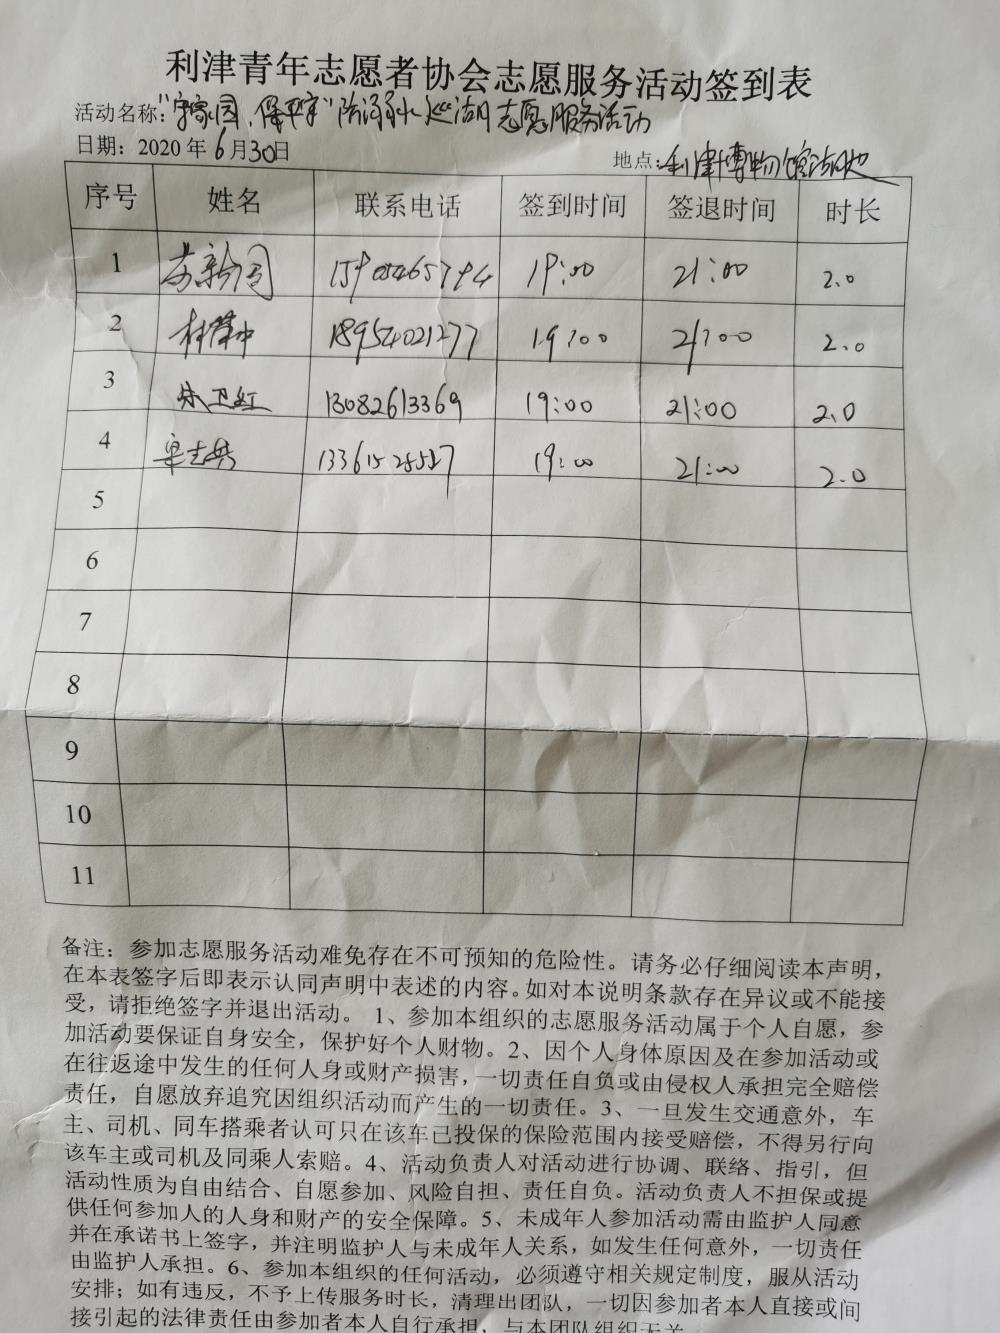 利津青年志愿者协会志愿服务活动签到表
活动名称:"守家园、保平安"防溺水巡湖志愿服务活动
日期: 2020 年 6 月 30 日
地点: 利津博物馆湿地
序号 姓名 联系电话 签到时间 签退时间 时长
1 19:00 21:00 2.0
2 18954021277 19:00 21:00 2.0
3 宋卫红 13082613369 19:00 21:00 2.0
4 13361525527 19:00 21:00 2.0
5
6
7
8
9
10
11
备注: 参加志愿服务活动难免存在不可预知的危险性。请务必仔细阅读本声明,
在本表签字后即表示认同声明中表述的内容。如对本说明条款存在异议或不能接
受,请拒绝签字并退出活动。 1、参加本组织的志愿服务活动属于个人自愿,参
加活动要保证自身安全,保护好个人财物。2、因个人身体原因及在参加活动或
在往返途中发生的任何人身或财产损害,一切责任自负或由侵权人承担完全赔偿
责任,自愿放弃追究因组织活动而产生的一切责任。3、一旦发生交通意外,车
主、司机、同车搭乘者认可只在该车已投保的保险范围内接受赔偿,不得另行向
该车主或司机及同乘人索赔。4、活动负责人对活动进行协调、联络、指引,但
活动性质为自由结合、自愿参加、风险自担、责任自负。活动负责人不担保或提
供任何参加人的人身和财产的安全保障。5、未成年人参加活动需由监护人同意
并在承诺书上签字,并注明监护人与未成年人关系,如发生任何意外,一切责任
由监护人承担。6、参加本组织的任何活动,必须遵守相关规定制度,服从活动
安排;如有违反,不予上传服务时长,清理出团队,一切因参加者本人直接或间
接引起的法律责任由参加者本人自行承担,与本团队组织无关